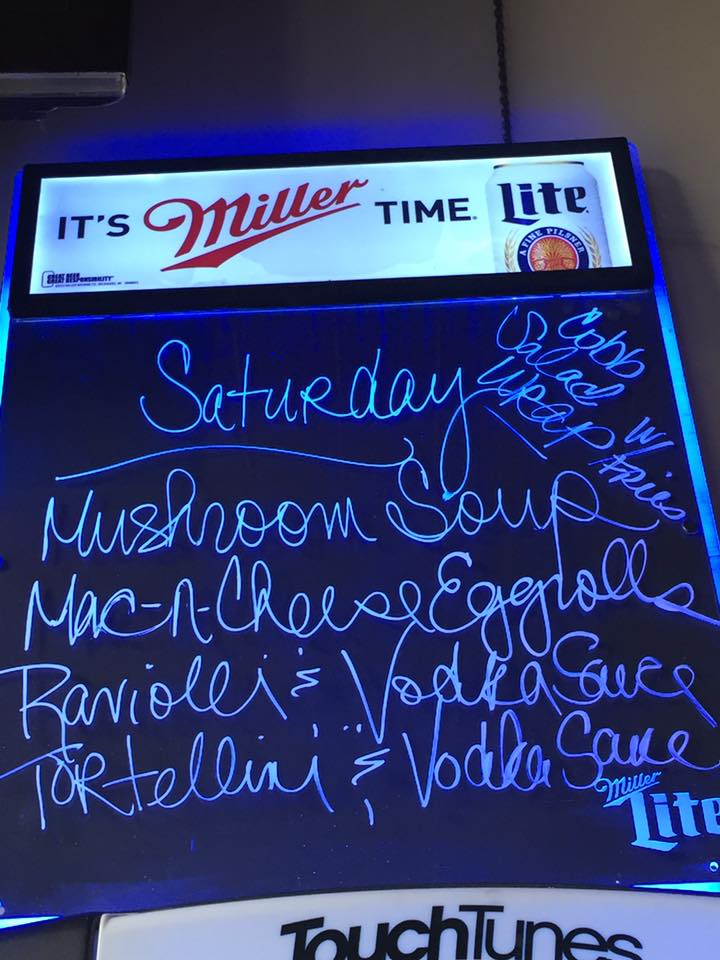 IT'S Miller TIME.
Lite
A FINE PILSNER
Saturday
Cobb
Salad
Wrap w/
Fries
Mushroom Soup
Mac-n-Cheese Eggrolls
Raviolli & Vodka Sauce
Tortellini & Vodka Sauce
Miller
Lite
TouchTunes